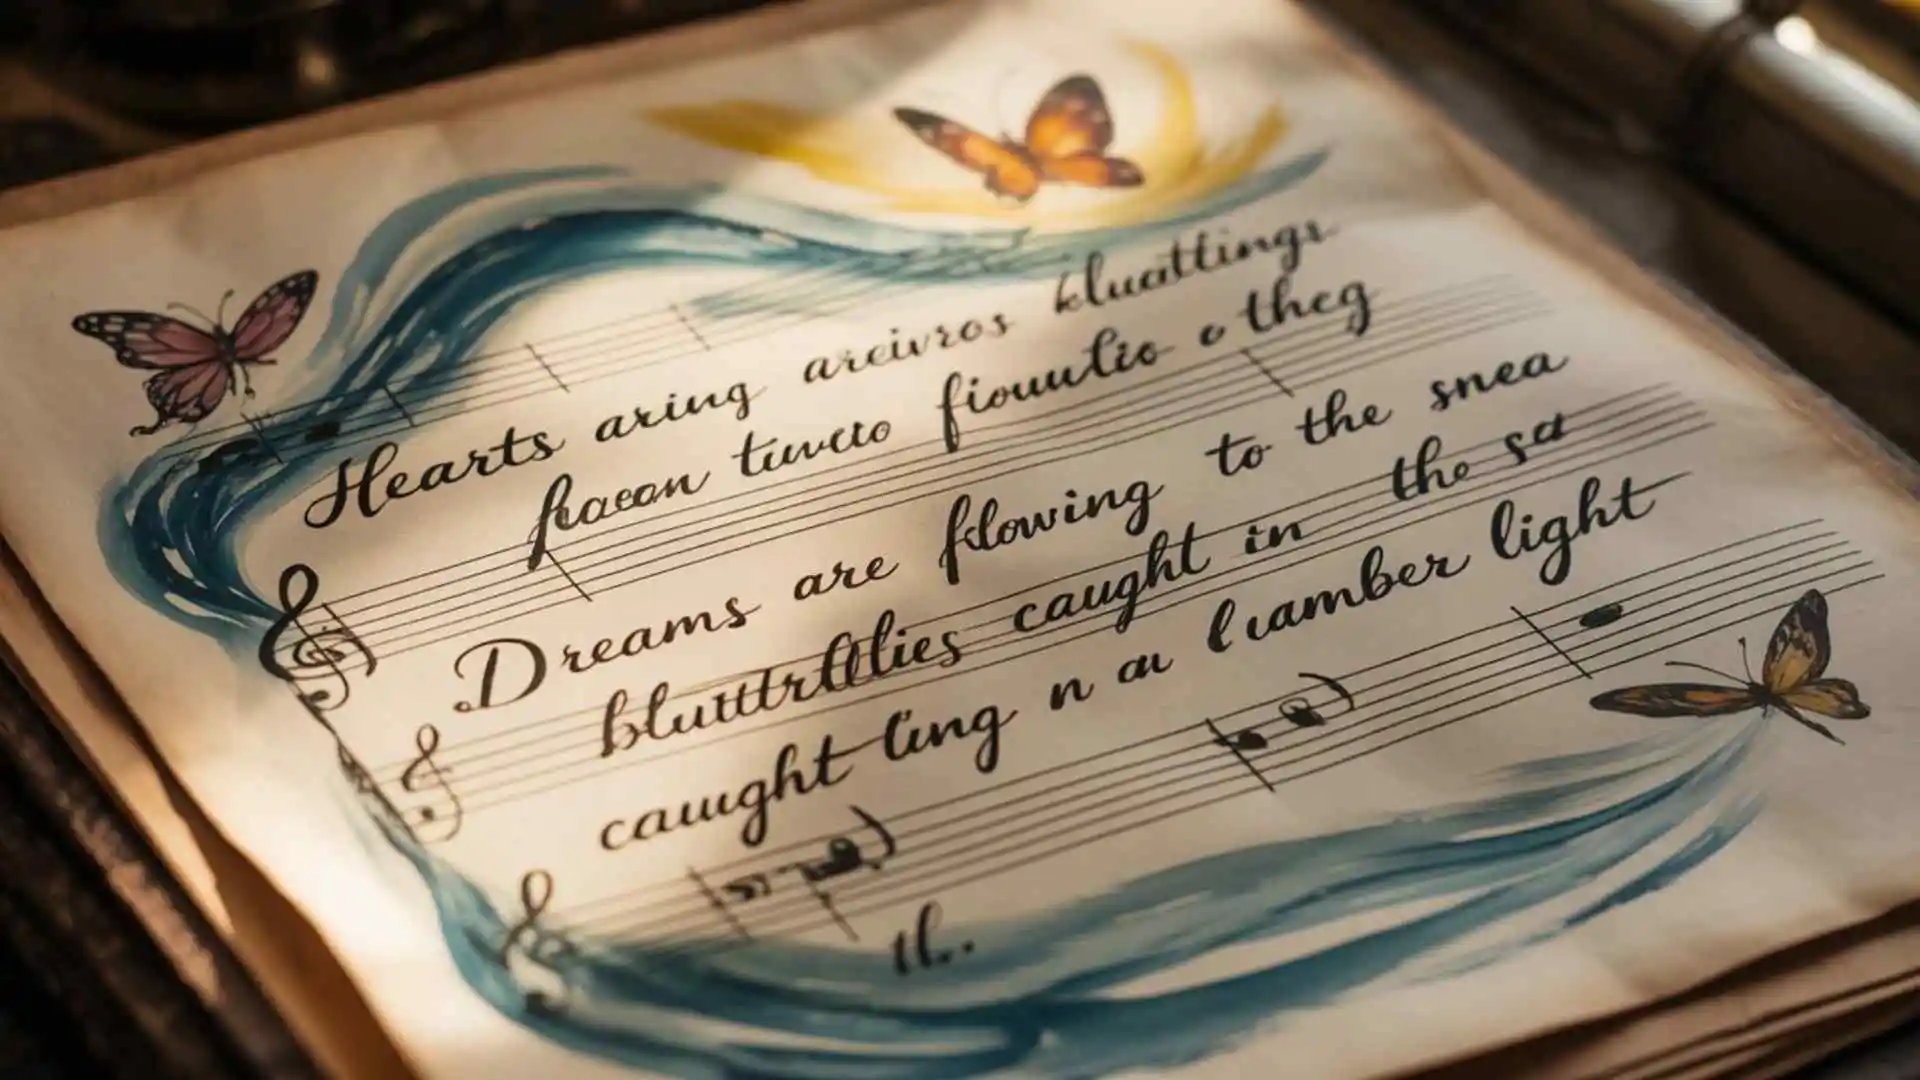 Hearts aring areivros kluattings
faeon tuvcto fiouutio o theg
Dreams are flowing to the snea
bluttrflies caught in the sa
cauught ling n au luamber light
th.